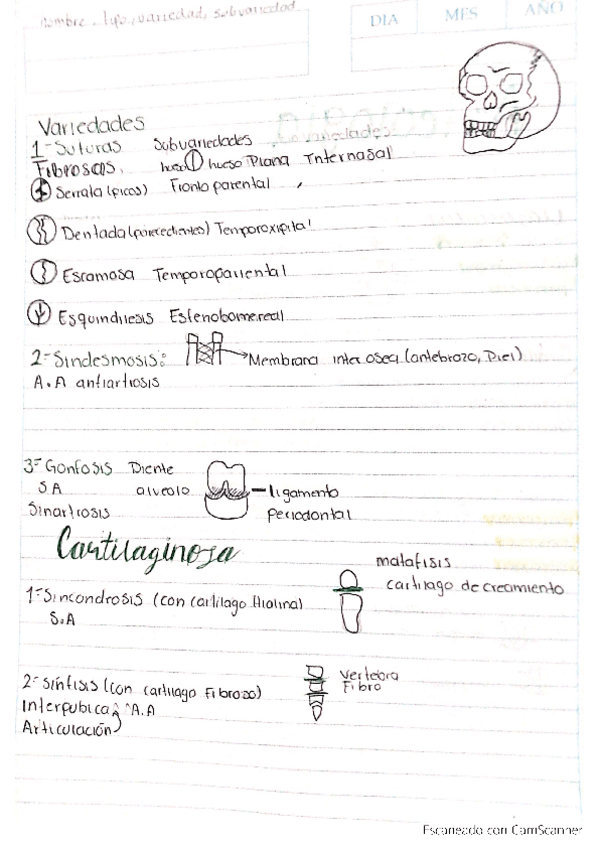 Nombre, tipo, variedad, subvariedad
DIA MES AÑO
Variedades
1- Suturas Subvariedades
Fibrosas. hueso hueso Plana Internasal
Serrata (picos) Fronto parental
Dentada (parecedientes) Temporoxipital
Escamosa Temporoparental
Esquindilesis Esfenobomereal
2- Sindesmosis: Membrana interosea (antebrazo, Piel)
A.A anfiartiosis
3- Gonfosis Diente
SA alveolo ligamento
Sinartrosis Periodontal
Cartilaginosa
matafisis
cartilago de crecimiento
1- Sincondrosis (con cartilago Hialina)
S.A
2- Sinfisis (con cartilago Fibroso) Vertebra
Fibro
Interpubica A.A
Articulación
Escaneado con CamScanner